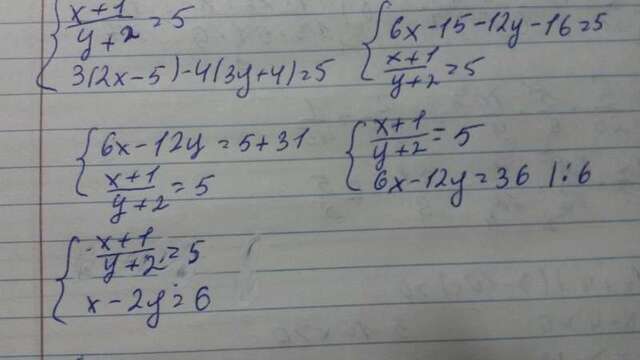 { (x+1)/(y+2) = 5
3(2x-5)-4(3y+4)=5
{ 6x-15-12y-16=5
(x+1)/(y+2) = 5
{ 6x-12y=5+31
(x+1)/(y+2) = 5
{ (x+1)/(y+2) = 5
6x-12y=36 |:6
{ (x+1)/(y+2) = 5
x-2y=6